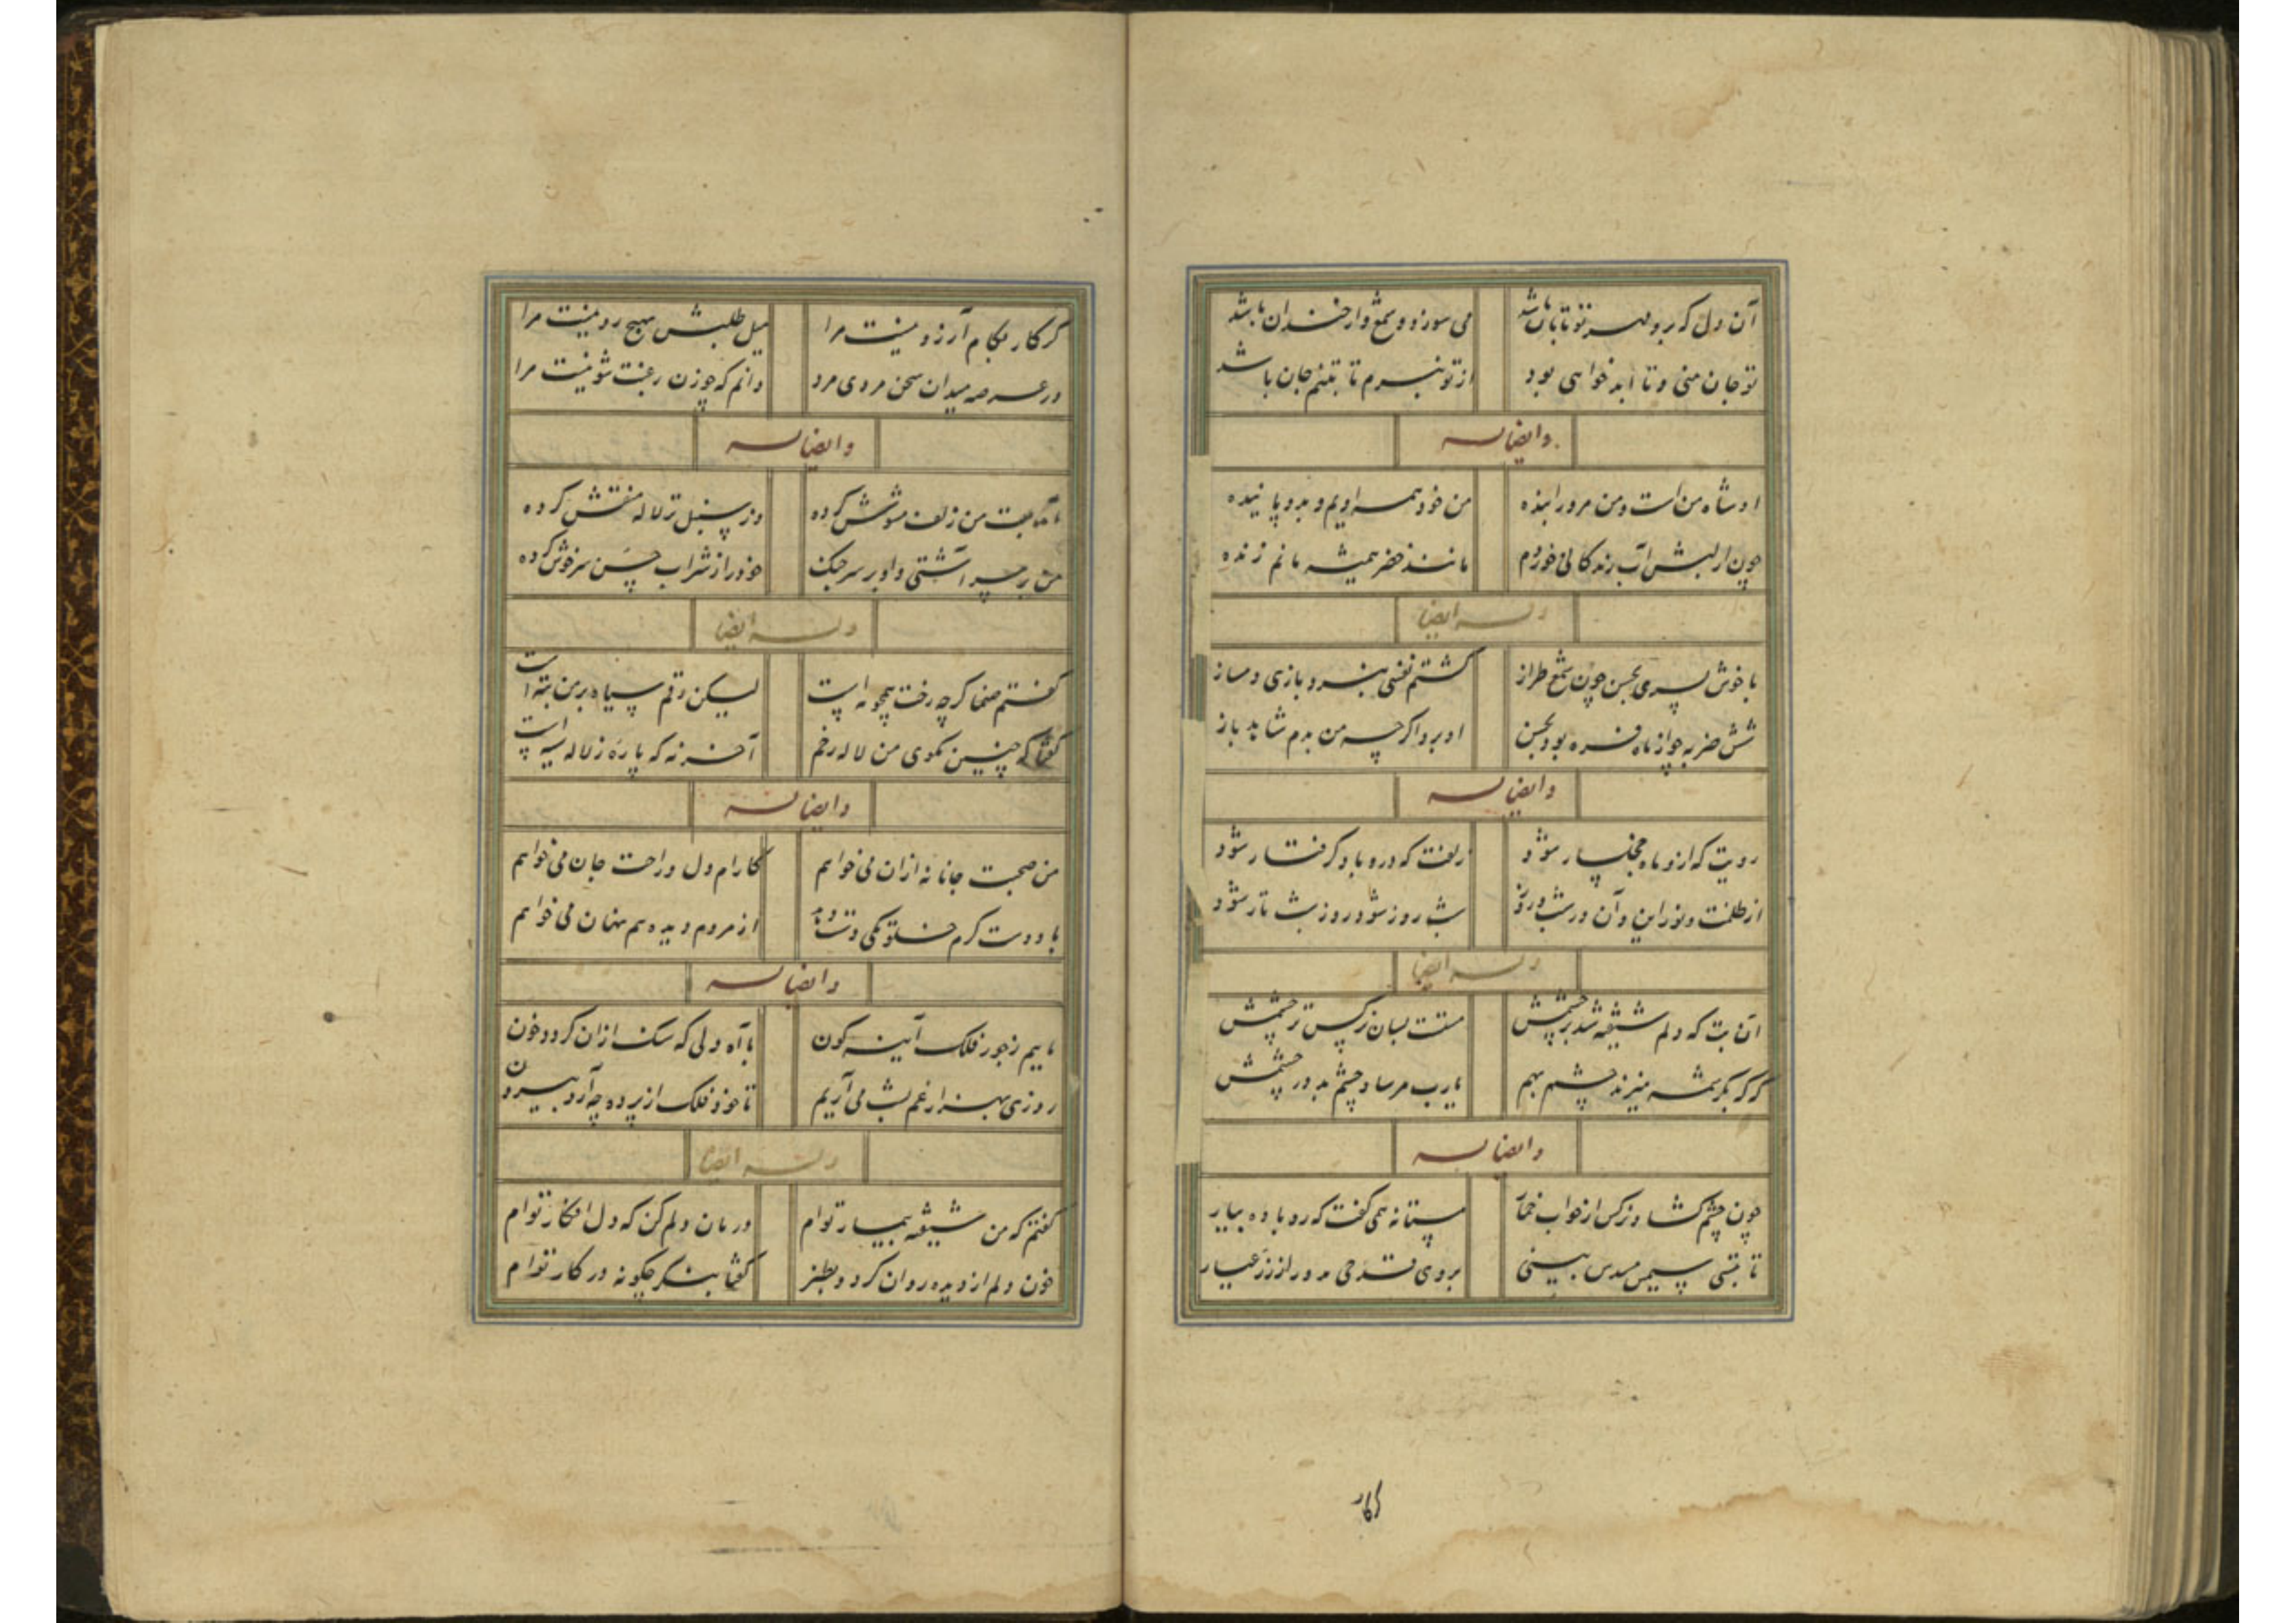 آن دل که برو مهر تو تابان باشد می سوزد و شمع وار خندان باشد
تو جان منی و تا ابد خواهی بود از تو نبرم تا بتنم جان باشد
وایضا له
او شاه من است و من مر او را بنده من خود همه اویم و بدو پاینده
چون از لبش آب زندگانی خوردم مانند خضر همیشه مانم زنده
وله ایضا
با خوش پسری بحسن چون شمع طراز گشتم نفسی بنرد بازی دمساز
شش ضربه چو از ماه فره بود بحسن او برد اگرچه من بدم شاهد باز
وایضا له
رویت که ازو ماه خجلسار شود زلفت که درو باد گرفتار شود
از طلعت و نور این و آن در شب و روز شب روز شود روز شب تار شود
وله ایضا
آن بت که دلم شیفته شد بر چشمش مستست بسان نرگس تر چشمش
گر کر بکرشمه میزند چشم بهم یارب مرساد چشم بد در چشمش
وایضا له
چون چشم گشاد نرگس از خواب خمار مستانه همی گفت که رو باده بیار
تا بتنی سیمین مسدس بینی بروی قدحی مدور از زر عیار
کر کار
گر کار بکام آرزو نیست مرا میل طلبش بهیچ رو نیست مرا
در عرصه میدان سخن مردی مرد دانم که چو زن رغبت شو نیست مرا
وایضا له
بت من زلف مشوش کرده وز سنبل تر لاله منقش کرده
من بر سر آشتی و او بر سر جنگ خود را ز شراب حسن سرخوش کرده
وله ایضا
گفتم صنما گرچه رخت همچو مه است لیکن رقم سیاه بر من تبه است
گفتا که چنین مگوی من لاله رخم آخر نه که پاره ز لاله سیه است
وایضا له
من صحبت جانانه ازان می خواهم کارام دل و راحت جان می خواهم
با دوست گرم خلوتکی دست دهد از مردم دیده هم نهان می خواهم
وایضا له
ماییم ز جور فلک آینه گون با آه دلی که سنگ ازان گردد خون
روزی بهزار غم بشب می آریم تا خود فلک از پرده چه آرد بیرون
وله ایضا
گفتم که من شیفته بیمار توام درمان دلم کن که دل افکار توام
خون دلم از دیده روان کرد و بطنز گفتا بنگر چگونه در کار توام